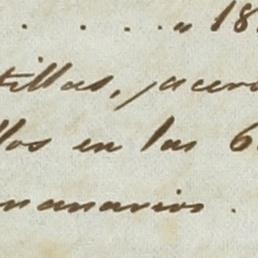 . . . . „ 18
tillas, jacer
llos en las 6
manarios.